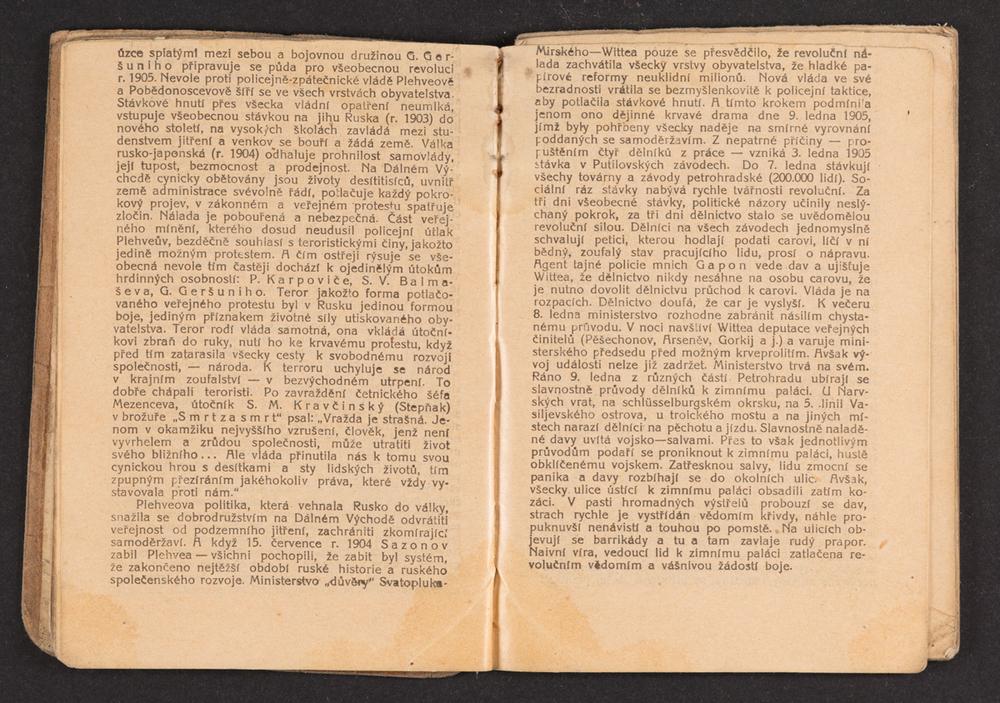 úzce spiatými mezi sebou a bojovnou družinou G. Ger-
šuniho připravuje se půda pro všeobecnou revoluci
r. 1905. Nevole proti policejně-zpátečnické vládě Plehveově
a Pobědonoscevově šíří se ve všech vrstvách obyvatelstva.
Stávkové hnutí přes všecka vládní opatření neumlká,
vstupuje všeobecnou stávkou na jihu Ruska (r. 1903) do
nového století, na vysokých školách zavládá mezi stu-
denstvem jitření a venkov se bouří a žádá země. Válka
rusko-japonská (r. 1904) odhaluje prohnilost samovlády,
její tupost, bezmocnost a prodejnost. Na Dálném Vý-
chodě cynicky obětovány jsou životy desítitisíců, uvnitř
země administrace svévolně řádí, potlačuje každý pokro-
kový projev, v zákonném a veřejném protestu spatřuje
zločin. Nálada je pobouřená a nebezpečná. Část veřej-
ného mínění, kterého dosud neudusil policejní útlak
Plehveův, bezděčně souhlasí s teroristickými činy, jakožto
jedině možným protestem. A čím ostřeji rýsuje se vše-
obecná nevole tím častěji dochází k ojedinělým útokům
hrdinných osobností: P. Karpoviče, S. V. Balma-
ševa, G. Geršuniho. Teror jakožto forma potlačo-
vaného veřejného protestu byl v Rusku jedinou formou
boje, jediným příznakem životné síly utiskovaného oby-
vatelstva. Teror rodí vláda samotná, ona vkládá útoční-
kovi zbraň do ruky, nutí ho ke krvavému protestu, když
před tím zatarasila všecky cesty k svobodnému rozvoji
společnosti, — národa. K terroru uchyluje se národ
v krajním zoufalství — v bezvýchodném utrpení. To
dobře chápali teroristi. Po zavraždění četnického šéfa
Mezenceva, útočník S. M. Kravčinský (Stepňak)
v brožuře „Smrt za smrt“ psal: „Vražda je strašná. Je-
nom v okamžiku nejvyššího vzrušení, člověk, jenž není
vyvrhelem a zrůdou společnosti, může utratiti život
svého bližního... Ale vláda přinutila nás k tomu svou
cynickou hrou s desítkami a sty lidských životů, tím
zpupným přezíráním jakéhokoliv práva, které vždy vy-
stavovala proti nám.“
Plehveova politika, která vehnala Rusko do války,
snažila se dobrodružstvím na Dálném Východě odvrátiti
veřejnost od podzemního jitření, zachrániti zkomírající
samoděržaví. A když 15. července r. 1904 Sazonov
zabil Plehvea — všichni pochopili, že zabit byl systém,
že zakončeno nejtěžší období ruské historie a ruského
společenského rozvoje. Ministerstvo „důvěry“ Svatopluka-
Mirského—Wittea pouze se přesvědčilo, že revoluční ná-
lada zachvátila všecky vrstvy obyvatelstva, že hladké pa-
pírové reformy neuklidní milionů. Nová vláda ve své
bezradnosti vrátila se bezmyšlenkovitě k policejní taktice,
aby potlačila stávkové hnutí. A tímto krokem podmínila
jenom ono dějinné krvavé drama dne 9. ledna 1905,
jímž byly pohřbeny všecky naděje na smírné vyrovnání
poddaných se samoděržavím. Z nepatrné příčiny — pro-
puštěním čtyř dělníků z práce — vzniká 3. ledna 1905
stávka v Putilovských závodech. Do 7. ledna stávkují
všechy továrny a závody petrohradské (200.000 lidí). So-
ciální ráz stávky nabývá rychle tvářnosti revoluční. Za
tři dni všeobecné stávky, politické názory učinily neslý-
chaný pokrok, za tři dni dělnictvo stalo se uvědomělou
revoluční silou. Dělníci na všech závodech jednomyslně
schvalují petici, kterou hodlají podati carovi, líčí v ní
bědný, zoufalý stav pracujícího lidu, prosí o nápravu.
Agent tajné policie mnich Gapon vede dav a ujišťuje
Wittea, že dělnictvo nikdy nesáhne na osobu carovu, že
je nutno dovolit dělnictvu průchod k carovi. Vláda je na
rozpacích. Dělnictvo doufá, že car je vyslyší. K večeru
8. ledna ministerstvo rozhodne zabrániti násilím chysta-
nému průvodu. V noci navštíví Wittea deputace veřejných
činitelů (Pěšechonov, Arseněv, Gorkij a j.) a varuje mini-
sterského předsedu před možným krveprolitím. Avšak vý-
voj události nelze již zadržet. Ministerstvo trvá na svém.
Ráno 9. ledna z různých částí Petrohradu ubírají se
slavnostně průvody dělníků k zimnímu paláci. U Narv-
ských vrat, na schlüsselburgském okrsku, na 5. linii Va-
siljevského ostrova, u troického mostu a na jiných mí-
stech narazí dělníci na pěchotu a jízdu. Slavnostně naladě-
né davy uvítá vojsko—salvami. Přes to však jednotlivým
průvodům podaří se proniknout k zimnímu paláci, hustě
obklíčenému vojskem. Zatřesknou salvy, lidu zmocní se
panika a davy rozbíhají se do okolních ulic. Avšak,
všecky ulice ústící k zimnímu paláci obsadili zatím ko-
záci. V pasti hromadných výstřelů probouzí se dav,
strach rychle je vystřídán vědomím křivdy, náhle pro-
puknuvší nenávistí a touhou po pomstě. Na ulicích ob-
jevují se barrikády a tu a tam zavlaje rudý prapor.
Naivní víra, vedoucí lid k zimnímu paláci zatlačena re-
volučním vědomím a vášnivou žádostí boje.